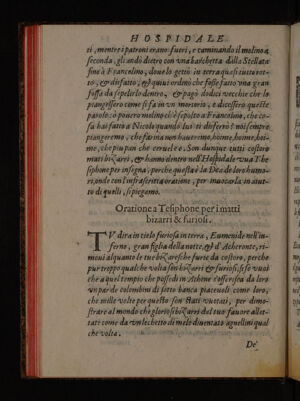 HOSPIDALE
ti, mentre i patroni erano fuori, e caminando il molino a
seconda, gli andò dietro con una barchetta dalla Stellata
sino à Francolino, doue lo gettò in terra quasi tutto rot-
to, & disfatto, & quiui ordinò che fosse fatta una gran
fossa da sepelirlo dentro, & pagò dodici vecchie che lo
piangessero come si fa in un mortorio, e dicessero queste
parole: ò pouero molino ch'è sepolto a Francolino, che co-
sa hai fatto a Nicolo quando lui ti disfece? noi sempre
piangeremo, che farina non hauremo, hoime, hoime, hoi-
me, che piu pan che ceruel e o. Son dunque tutti costoro
matti bizarri, & hanno dentro nell'Hospidale vna Thesi-
phone per insegna, perche questa è la Dea de loro humo-
ri, onde con l'infrascritta oratione, per mouerla in aiut-
to di quelli, si piegamo.
Oratione a Tesiphone per i matti
bizarri & furiosi.
TV dira in cielo furiosa in terra, Eumenide nell'in-
ferno, gran figlia della notte, & d'Acheronte, ri-
moui alquanto le tue bizaresche furie da costoro, perche
pur troppo qualche volta son bizarri, & furiosi, se so vuoi
che a quel tempio che possedi in Athene s'offerisca da loro
un par de colombini di sotto banca piaceuoli come loro,
che mille volte per questo son stati vuttati, per dimo-
strare al mondo che gloriosi bizarri del tuo fauore allet-
tati come da vn lechetto di mele diuentato agnellini qual
che volta.
De'